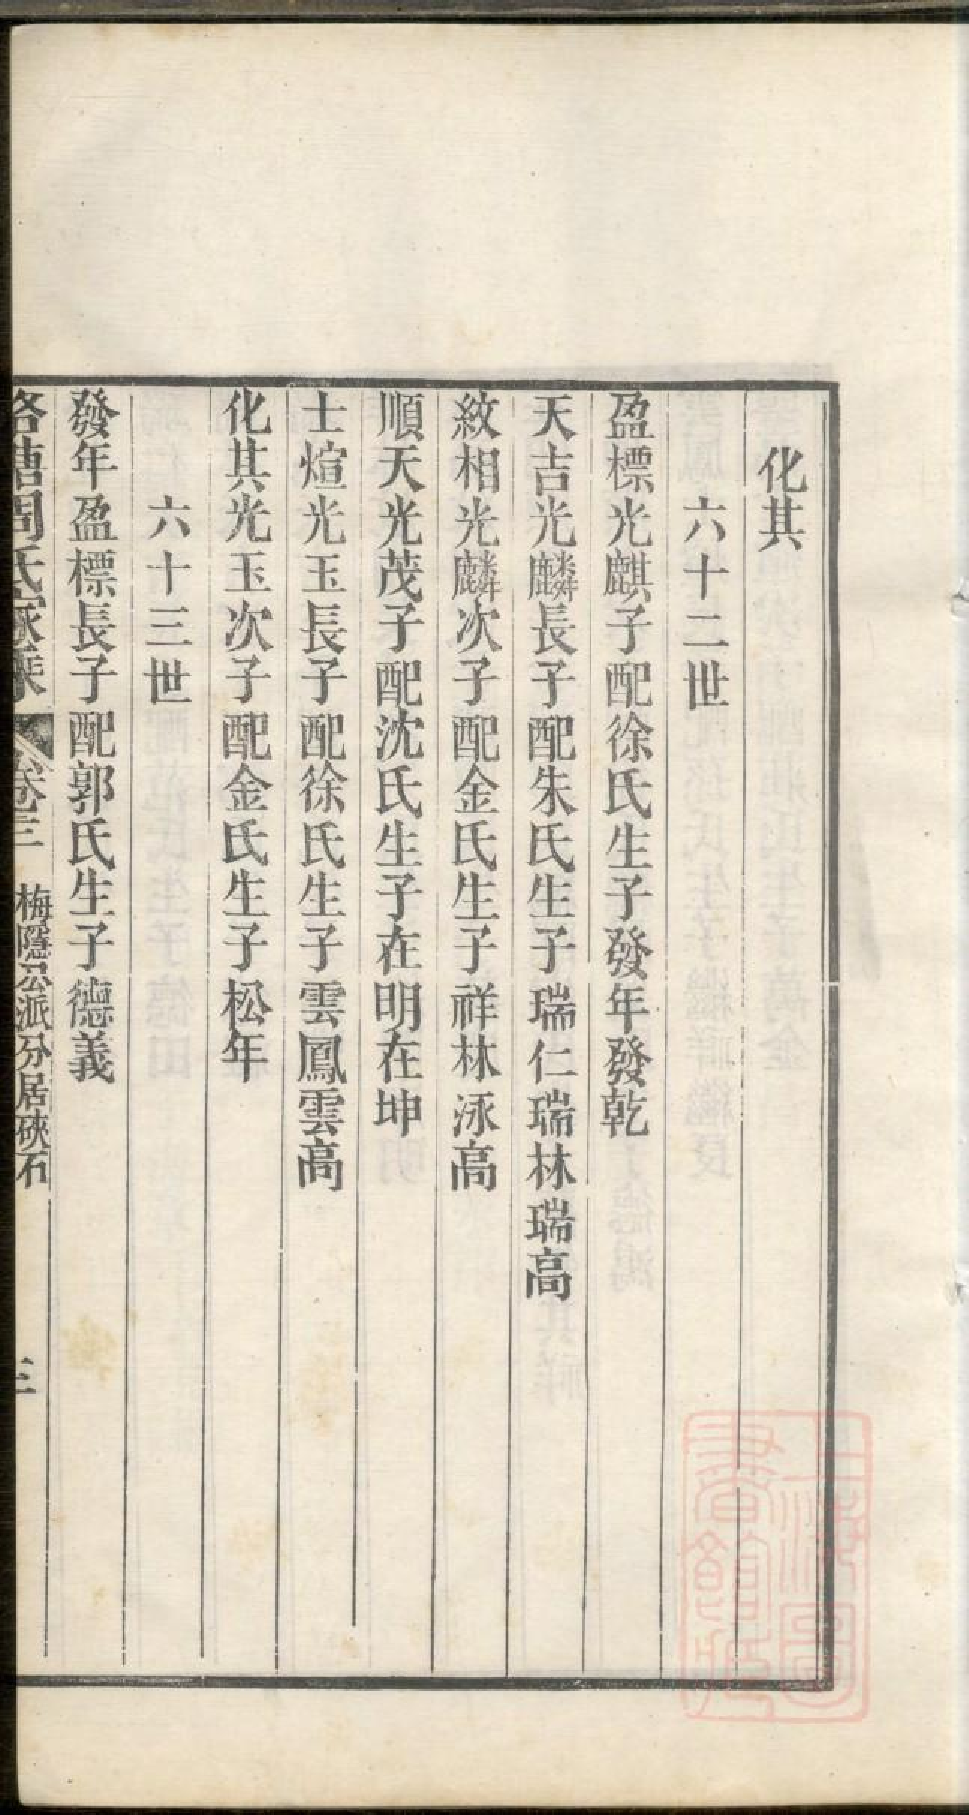 化其
六十二世
盈標光麒子配徐氏生子發年發乾
天吉光麟長子配朱氏生子瑞仁瑞林瑞高
紋相光麟次子配金氏生子祥林泳高
順天光茂子配沈氏生子在明在坤
士煊光玉長子配徐氏生子雲鳳雲高
化其光玉次子配金氏生子松年
六十三世
發年盈標長子配郭氏生子德義
洛塘周氏家乘 卷三 梅隱公派分居硤石 三
上海圖書館藏